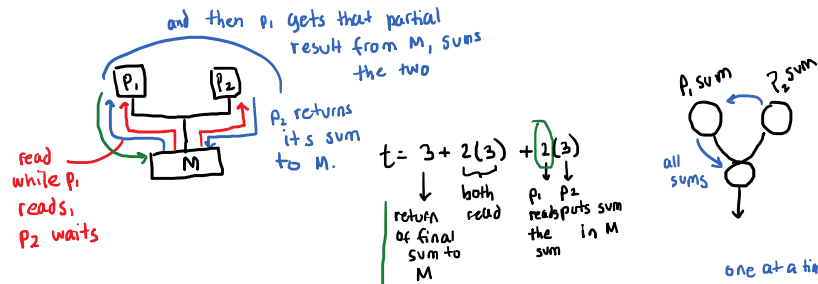 and then P1 gets that partial
result from M, sums
the two
P1
P2
M
P2 returns
it's sum
to M.
read
while P1
reads,
P2 waits
t = 3 + 2(3) + 2(3)
return
of final
sum to
M
both
read
P1
reads
the
sum
P2
puts sum
in M
P1 sum
P2 sum
all
sums
one at a